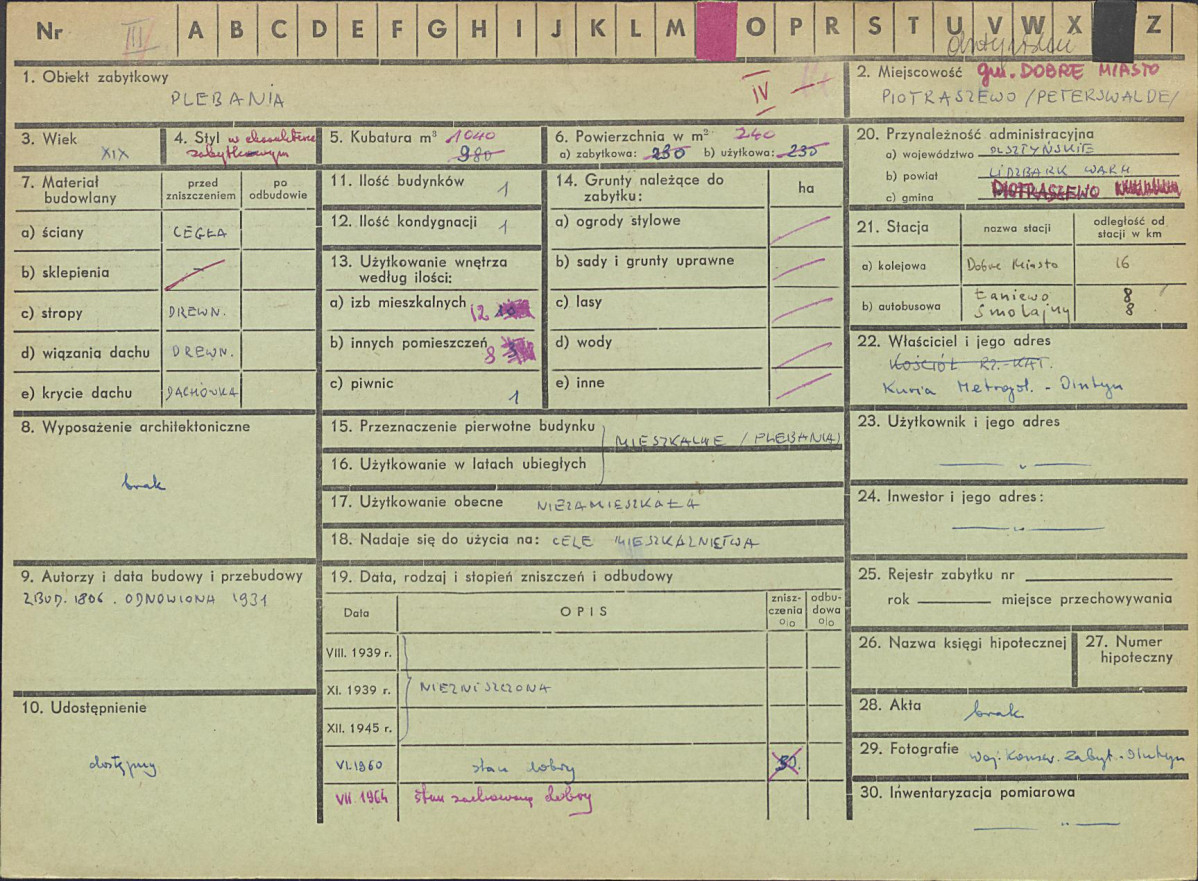 Nr III A B C D E F G H I J K L M O P R S T U V W X Z
1. Obiekt zabytkowy
PLEBANIA
IV
2. Miejscowość gm. DOBRE MIASTO
PIOTRASZEWO /PETERSWALDE/
3. Wiek
XIX
4. Styl w charakterze
zabytkowym
5. Kubatura m³ 1040
980
6. Powierzchnia w m² 240
a) zabytkowa: 230 b) użytkowa: 230
20. Przynależność administracyjna
a) województwo OLSZTYŃSKIE
b) powiat LIDZBARK WARM
c) gmina PIOTRASZEWO
7. Materiał budowlany
przed zniszczeniem
po odbudowie
a) ściany CEGŁA
b) sklepienia —
c) stropy DREWN.
d) wiązania dachu DREWN.
e) krycie dachu DACHÓWKA
11. Ilość budynków 1
12. Ilość kondygnacji 1
13. Użytkowanie wnętrza
według ilości:
a) izb mieszkalnych 12 10
b) innych pomieszczeń 8 3
c) piwnic 1
14. Grunty należące do
zabytku:
ha
a) ogrody stylowe
b) sady i grunty uprawne
c) lasy
d) wody
e) inne
21. Stacja
nazwa stacji
odległość od
stacji w km
a) kolejowa Dobre Miasto 16
b) autobusowa Łaniewo 8
Smolajny 8
22. Właściciel i jego adres
KOŚCIÓŁ RZ.-KAT.
Kuria Metropol. - Olsztyn
8. Wyposażenie architektoniczne
brak
15. Przeznaczenie pierwotne budynku
MIESZKALNE /PLEBANIA/
16. Użytkowanie w latach ubiegłych
17. Użytkowanie obecne NIEZAMIESZKAŁA
18. Nadaje się do użycia na: CELE MIESZKALNICTWA
23. Użytkownik i jego adres
— „ —
24. Inwestor i jego adres:
— „ —
9. Autorzy i data budowy i przebudowy
ZBUD. 1806. ODNOWIONA 1931
19. Data, rodzaj i stopień zniszczeń i odbudowy
Data
OPIS
znisz-
czenia
%
odbu-
dowa
%
VIII. 1939 r.
XI. 1939 r. NIEZNISZCZONA
XII. 1945 r.
VI.1960 stan dobry 30.
VII 1964 stan zachowany dobry
25. Rejestr zabytku nr
rok miejsce przechowywania
26. Nazwa księgi hipotecznej
27. Numer
hipoteczny
10. Udostępnienie
dostępny
28. Akta brak
29. Fotografie Woj. Konsw. Zabyt. Olsztyn
30. Inwentaryzacja pomiarowa
— „ —